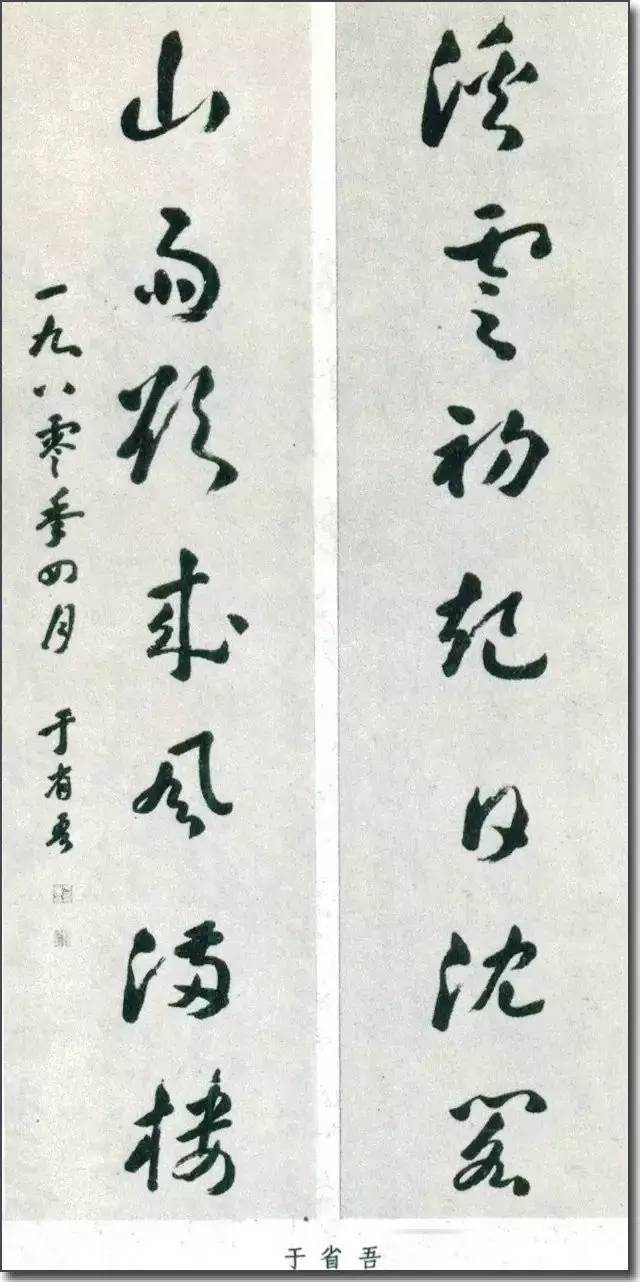 溪雲初起日沈閣
山雨欲來风滿楼
一九八零年四月 于省吾
于省吾